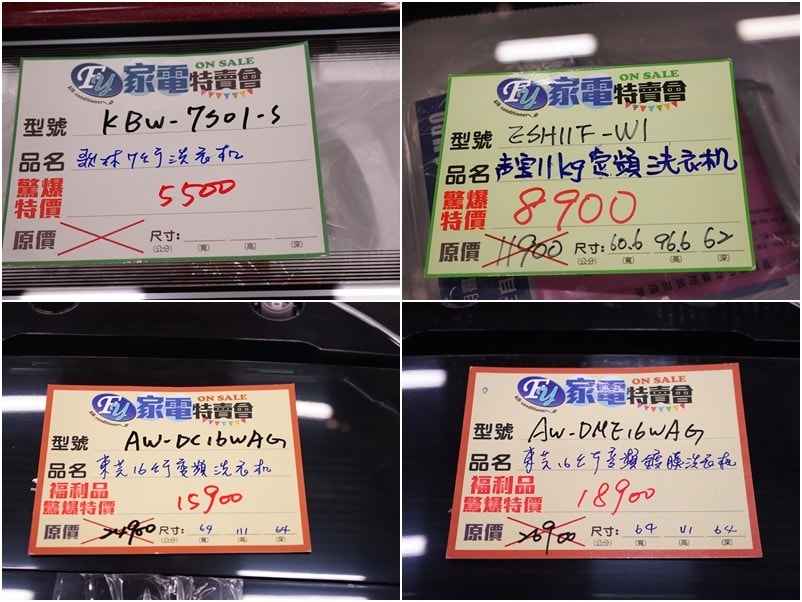 ON SALE
FY 家電特賣會
Air conditioner
型號 KBW-7S01-S
品名 歌林7公斤洗衣机
驚爆特價 5500
原價 尺寸:
(公分) (寬) (高) (深)
ON SALE
FY 家電特賣會
Air conditioner
型號 ESH11F-W1
品名 声宝11kg定頻洗衣机
驚爆特價 8900
原價 11900 尺寸: 60.6 96.6 62
(公分) (寬) (高) (深)
ON SALE
FY 家電特賣會
Air conditioner
型號 AW-DC16WAG
品名 東芝16公斤变頻洗衣机
福利品
驚爆特價 15900
原價 24900 尺寸: 64 111 64
(公分) (寬) (高) (深)
ON SALE
FY 家電特賣會
Air conditioner
型號 AW-DME16WAG
品名 東芝16公斤变頻鍍膜洗衣机
福利品
驚爆特價 18900
原價 26900 尺寸: 64 111 64
(公分) (寬) (高) (深)